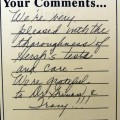 Your Comments...
We're very
pleased with the
thoroughness of
tests
and care —
We're grateful
to Dr.
Tracy !!!